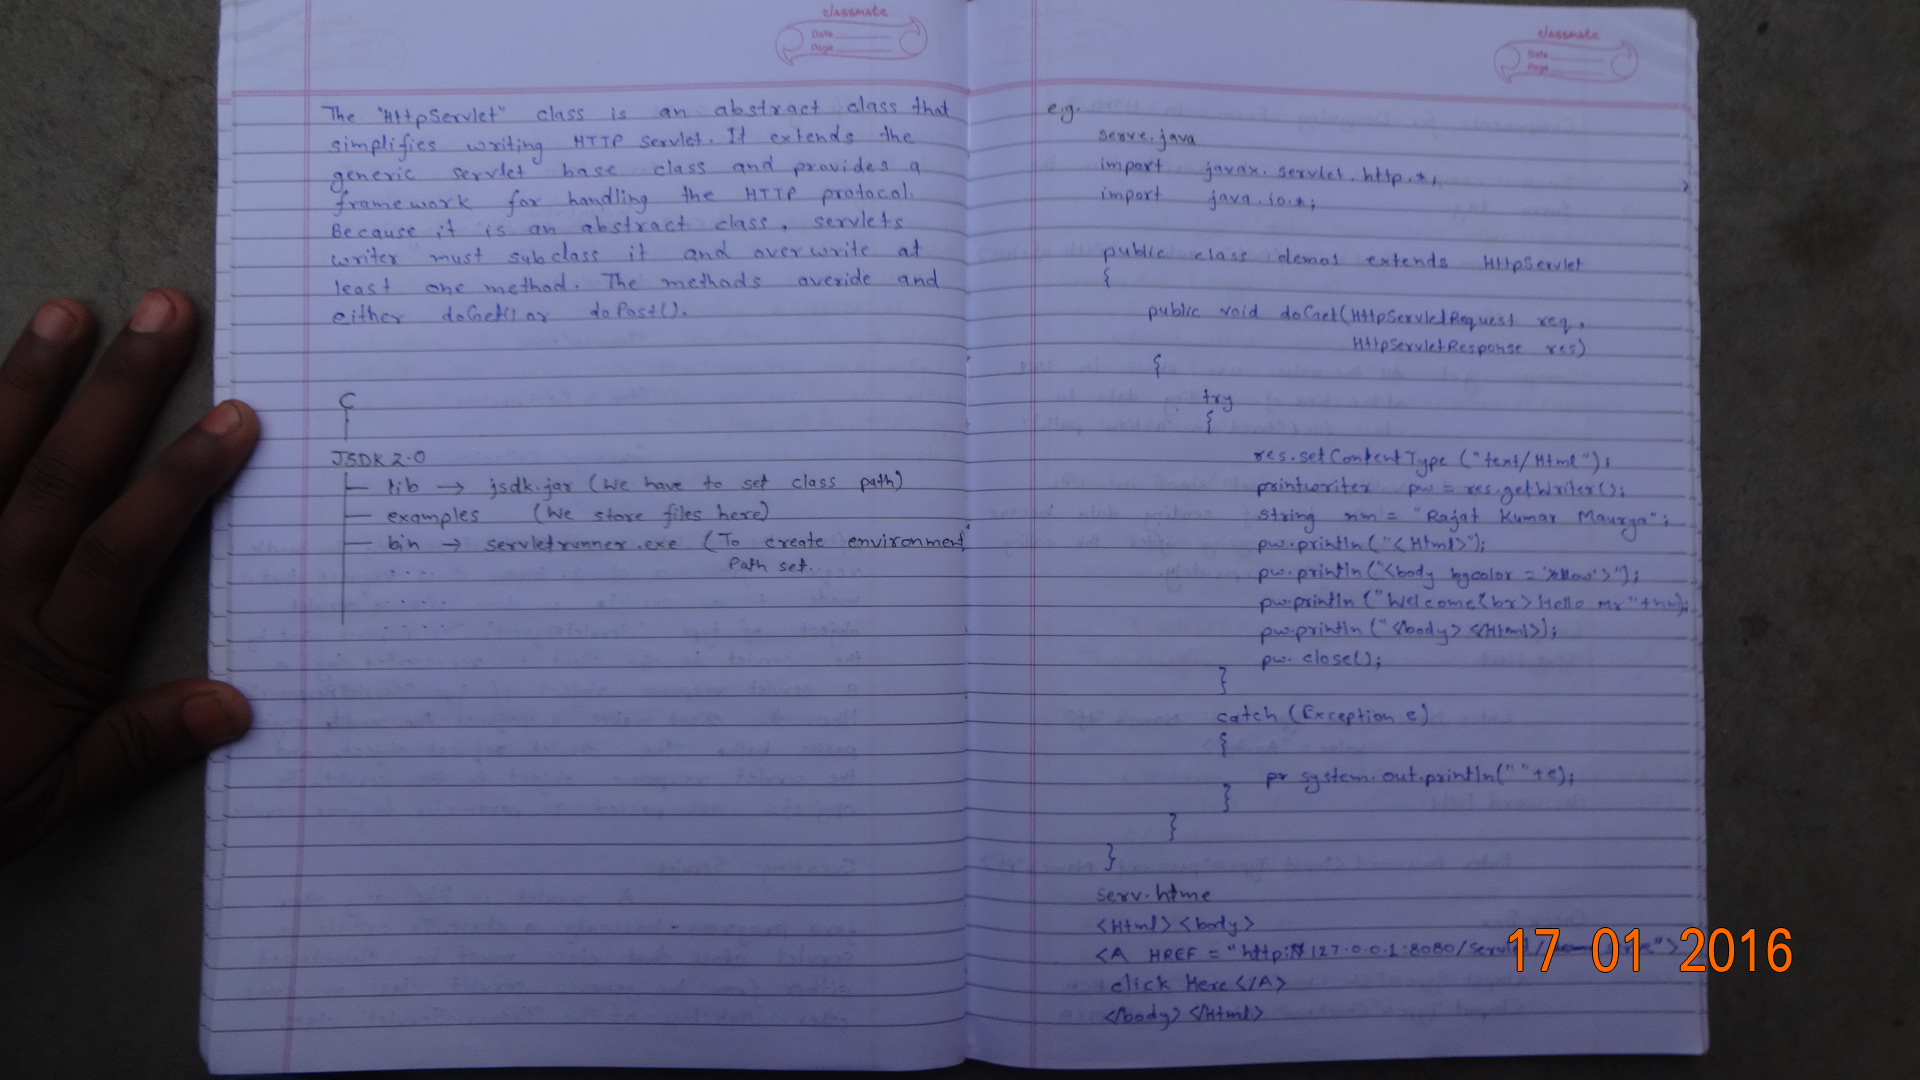 classmate
Date
Page
The "HttpServlet" class is an abstract class that
simplifies writing HTTP servlet. It extends the
generic servlet base class and provides a
framework for handling the HTTP protocol.
Because it is an abstract class, servlets
writer must subclass it and overwrite at
least one method. The methods overide and
either doGet() or doPost().
C
JSDK 2.0
lib → jsdk.jar (We have to set class path)
examples (We store files here)
bin → servletrunner.exe (To create environment
Path set.
. . . .
. . . . .
. . . . .
classmate
Date
Page
e.g.
serve.java
import javax.servlet.http.*;
import java.io.*;
public class demo1 extends HttpServlet
{
public void doGet(HttpServletRequest req,
HttpServletResponse res)
{
try
{
res.setContentType ("text/Html");
printwriter pw = res.getWriter();
string nm = "Rajat Kumar Maurya";
pw.println("<Html>");
pw.println("<body bgcolor = 'yellow'>");
pw.println ("Welcome<br> Hello Mr"+nm);
pw.println ("</body> </Html>);
pw. close();
}
catch (Exception e)
{
pr system.out.println(" "+e);
}
}
}
serv.htme
<Html> <body>
<A HREF = "http://127.0.0.1:8080/servlet/
click Here </A>
</body> </Html>
17 01 2016